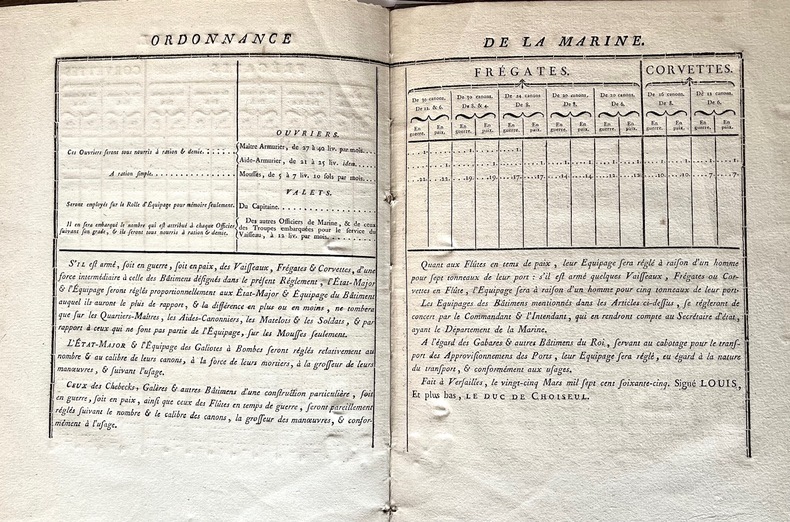 ORDONNANCE
OUVRIERS.
Ces Ouvriers seront tous nourris à ration & demie.
Maître Armurier, de 27 à 40 liv. par mois.
Aide-Armurier, de 21 à 25 liv. idem.
A ration simple.
Mousses, de 5 à 7 liv. 10 sols par mois.
VALETS.
Seront employés sur le Rolle d'Équipage pour mémoire seulement.
Du Capitaine.
Il en sera embarqué le nombre qui est attribué à chaque Officier,
suivant son grade, & ils seront tous nourris à ration & demie.
Des autres Officiers de Marine, & de ceux
des Troupes embarquées pour le service du
Vaisseau, à 12 liv. par mois.
S'IL est armé, soit en guerre, soit en paix, des Vaisseaux, Frégates & Corvettes, d'une
force intermédiaire à celle des Bâtimens désignés dans le présent Réglement, l'État-Major
& l'Équipage seront réglés proportionnellement aux État-Major & Équipage du Bâtiment
auquel ils auront le plus de rapport, & la différence en plus ou en moins, ne tombera
que sur les Quartiers-Maîtres, les Aides-Canonniers, les Matelots & les Soldats, & par
rapport à ceux qui ne font pas partie de l'Équipage, sur les Mousses seulement.
L'ÉTAT-MAJOR & l'Équipage des Galiotes à Bombes seront réglés relativement au
nombre & au calibre de leurs canons, à la force de leurs mortiers, à la grosseur de leurs
manœuvres, & suivant l'usage.
CEUX des Chebecks, Galères & autres Bâtimens d'une construction particulière, soit
en guerre, soit en paix, ainsi que ceux des Flûtes en temps de guerre, seront pareillement
réglés suivant le nombre & le calibre des canons, la grosseur des manœuvres, & confor-
mément à l'usage.
DE LA MARINE.
FRÉGATES. CORVETTES.
De 30 canons. De 24 canons. De 20 canons. De 20 canons. De 16 canons. De 12 canons.
De 8. & 4. De 8. De 8. De 6. De 8. De 6.
En guerre. En paix. En guerre. En paix. En guerre. En paix. En guerre. En paix. En guerre. En paix. En guerre. En paix. En guerre. En paix.
Quant aux Flûtes en tems de paix, leur Equipage sera réglé à raison d'un homme
pour sept tonneaux de leur port : s'il est armé quelques Vaisseaux, Frégates ou Cor-
vettes en Flûte, l'Equipage sera à raison d'un homme pour cinq tonneaux de leur port.
Les Equipages des Bâtimens mentionnés dans les Articles ci-dessus, se régleront de
concert par le Commandant & l'Intendant, qui en rendront compte au Secrétaire d'état,
ayant le Département de la Marine.
A l'égard des Gabares & autres Bâtimens du Roi, servant au cabotage pour le trans-
port des Approvisionnemens des Ports, leur Equipage sera réglé, eu égard à la nature
du transport, & conformément aux usages.
Fait à Versailles, le vingt-cinq Mars mil sept cens soixante-cinq. Signé LOUIS,
Et plus bas, LE DUC DE CHOISEUL.